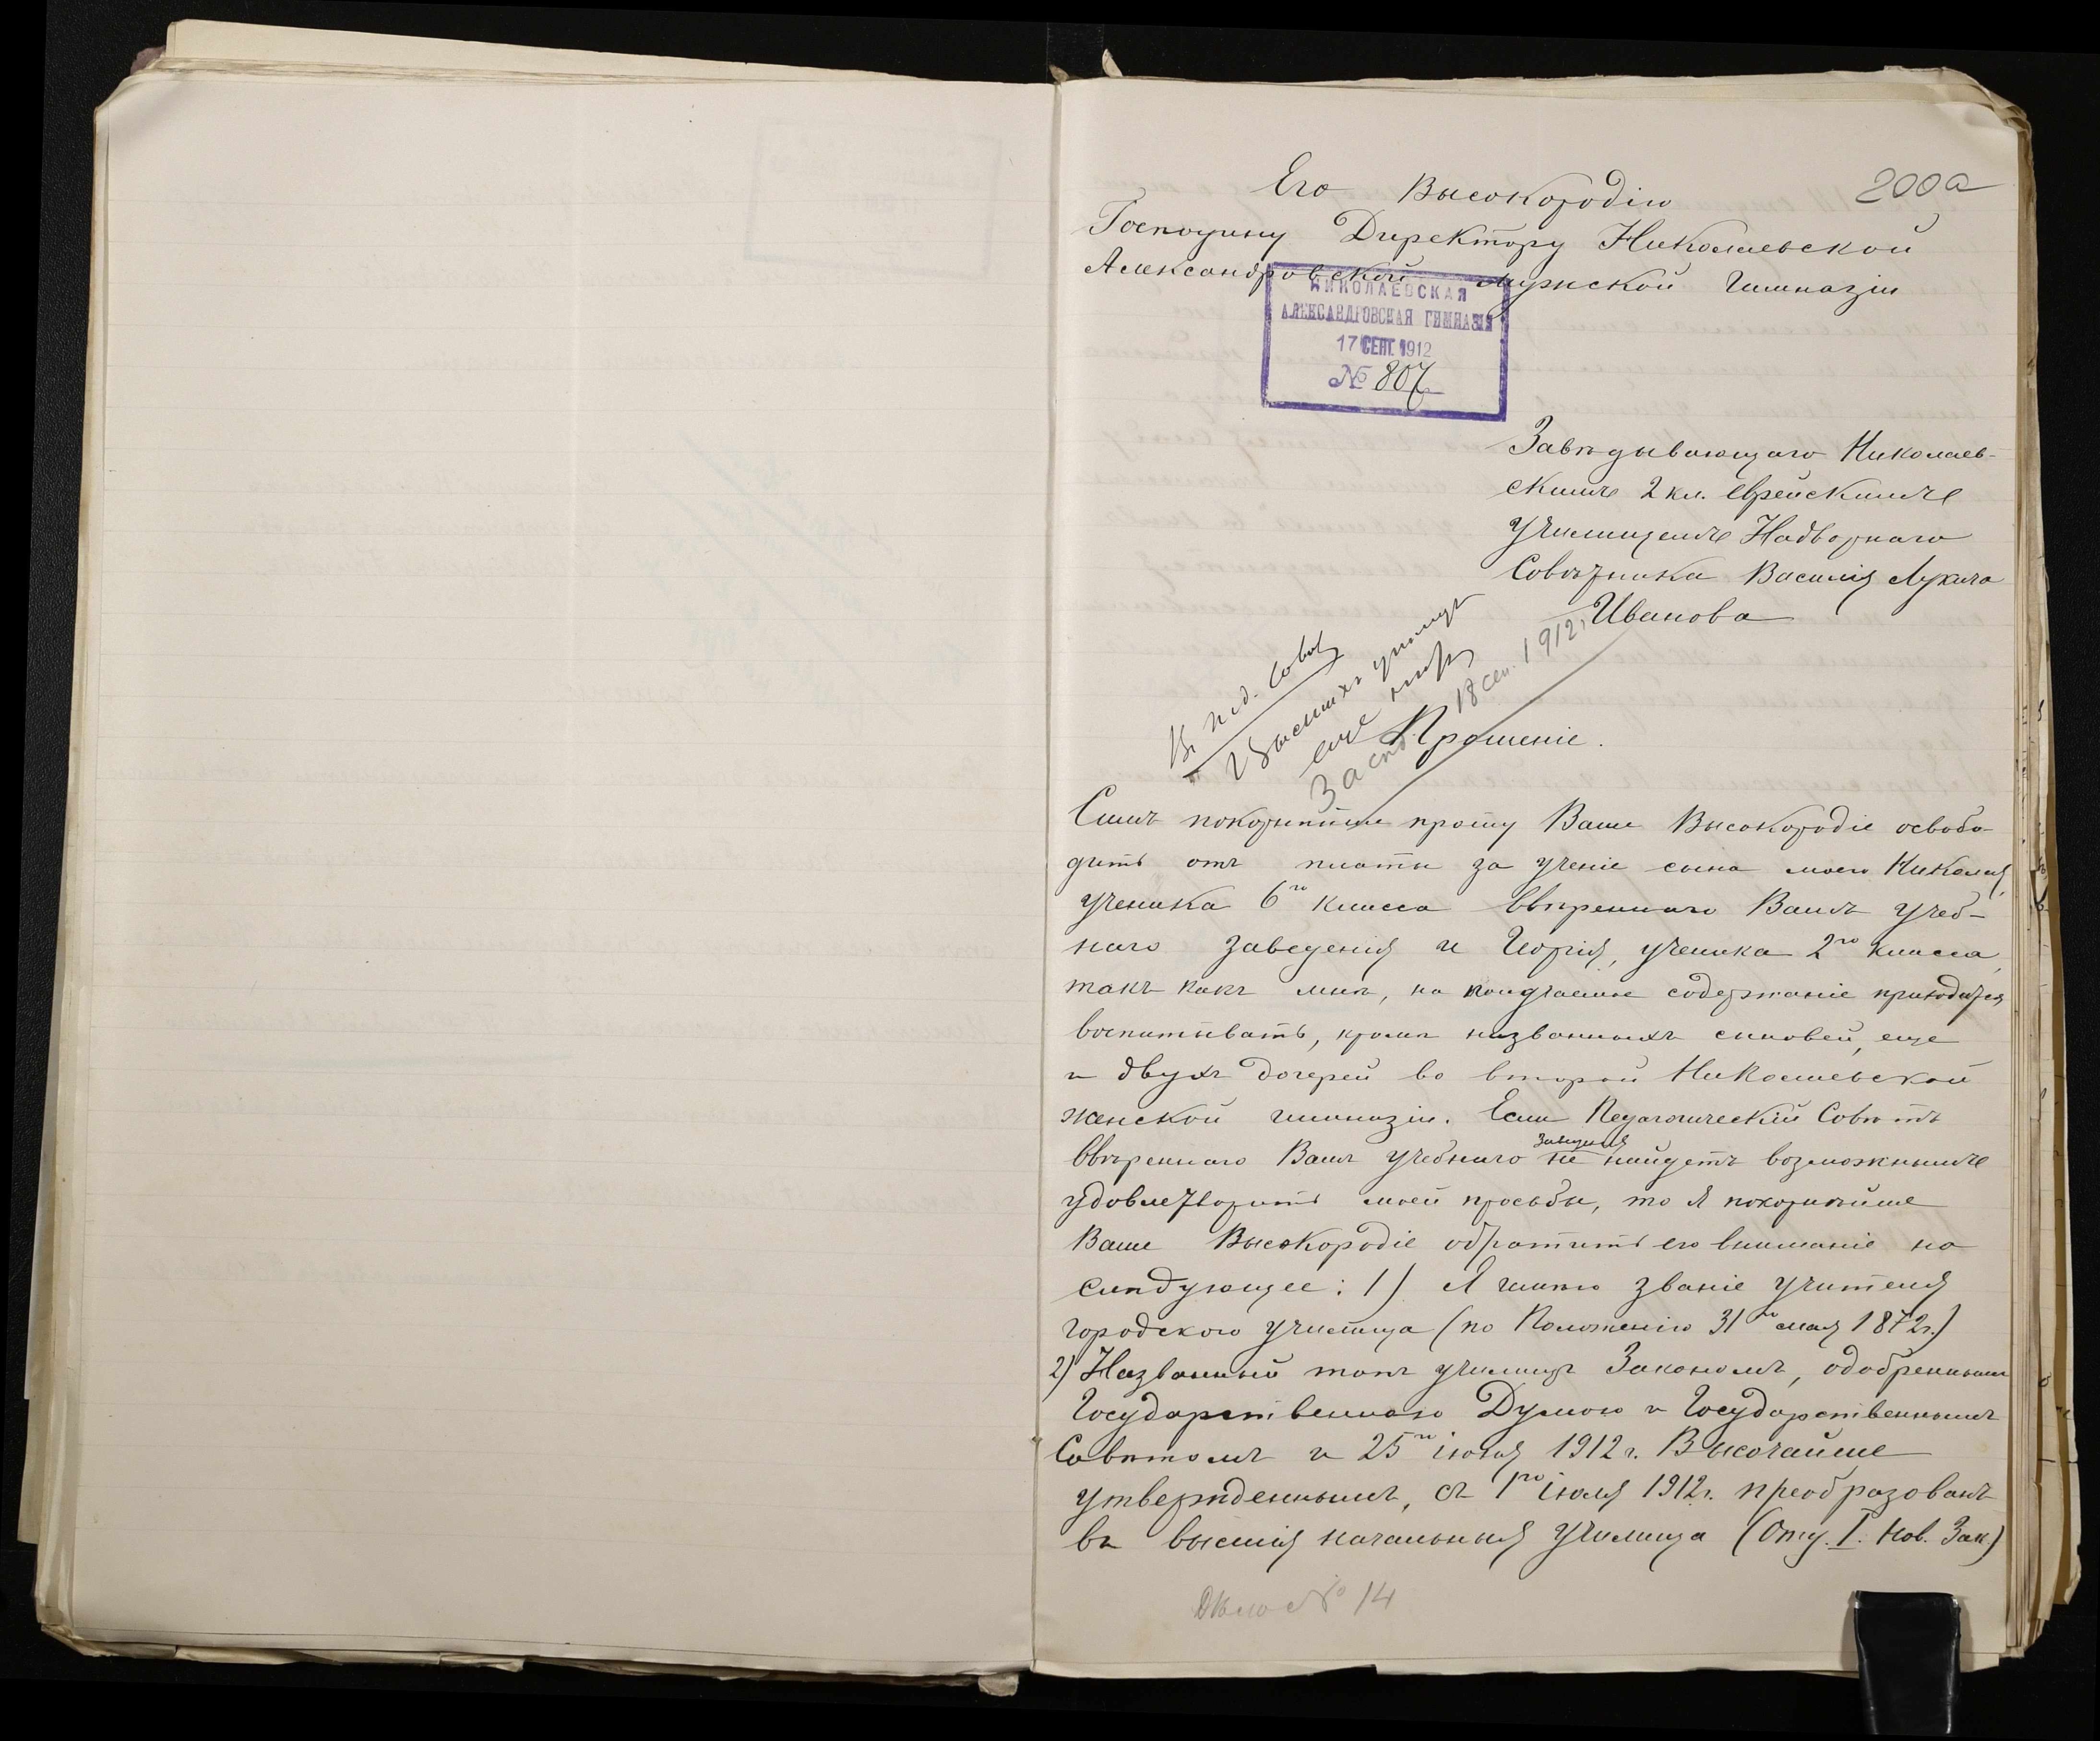 200а
Его Высокородію
Господину Директору Николаевской
Александровской мужской Гимназіи
НИКОЛАЕВСКАЯ
АЛЕКСАНДРОВСКАЯ ГИМНАЗІЯ
17 СЕНТ. 1912
№ 807
Завѣдывающаго Николаев-
скимъ 2 кл. еврейскимъ
училищемъ Надворнаго
Совѣтника Василія Лукича
Иванова
Въ пед. Совѣт
18 сен. 1912
Прошеніе.
Симъ покорнѣйше прошу Ваше Высокородіе освобо-
дить отъ платы за ученіе сына моего Николая,
ученика 6го класса ввѣреннаго Вамъ учеб-
наго заведенія и Георгія, ученика 2го класса,
такъ какъ мнѣ, на получаемое содержаніе приходится
воспитывать, кромѣ названныхъ сыновей, еще
и двухъ дочерей во второй Николаевской
женской гимназіи. Если Педагогическій Совѣтъ
ввѣреннаго Вамъ учебнаго заведенія не найдетъ возможнымъ
удовлетворить моей просьбы, то я покорнѣйше
Ваше Высокородіе обратить его вниманіе на
слѣдующее: 1) Я имѣю званіе учителя
городского училища (по Положенію 31го мая 1872г.)
2) Названный типъ училищъ Закономъ, одобреннымъ
Государственною Думою и Государственнымъ
Совѣтомъ и 25го іюня 1912 г. Высочайше
утвержденнымъ, съ 1го іюля 1912г. преобразованъ
въ высшія начальныя училища (Отд. I. Нов. Зак.)
Дѣло № 14